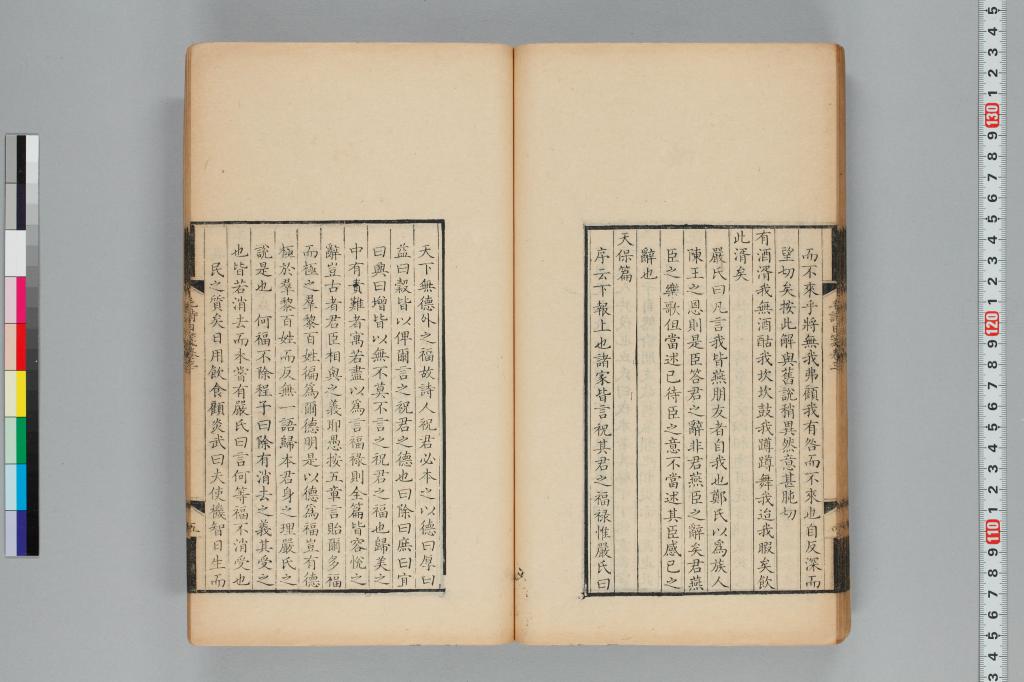 而不來乎將無我弗顧我有咎而不來也自反深而
望切矣按此解與舊說稍異然意甚肫切
有酒湑我無酒酤我坎坎鼓我蹲蹲舞我迨我暇矣飲
此湑矣
嚴氏曰凡言我皆燕朋友者自我也鄭氏以為族人
陳王之恩則是臣答君之辭非君燕臣之辭矣君燕
臣之樂歌但當述己待臣之意不當述其臣感己之
辭也
天保篇
序云下報上也諸家皆言祝其君之福祿惟嚴氏曰
天下無德外之福故詩人祝君必本之以德曰厚曰
益曰穀皆以俾爾言之祝君之德也曰除曰庶曰宜
曰興曰增皆以無不莫不言之祝君之福也歸美之
中有責難者寓若盡以為言福祿則全篇皆容悅之
辭豈古者君臣相與之義耶愚按五章言貽爾多福
而極之羣黎百姓徧為爾德明是以德為福豈有德
極於羣黎百姓而反無一語歸本君身之理嚴氏之
說是也 何福不除程子曰除有消去之義其受之
也皆若消去而未嘗有嚴氏曰言何等福不消受也
民之質矣日用飲食顧炎武曰夫使機智日生而